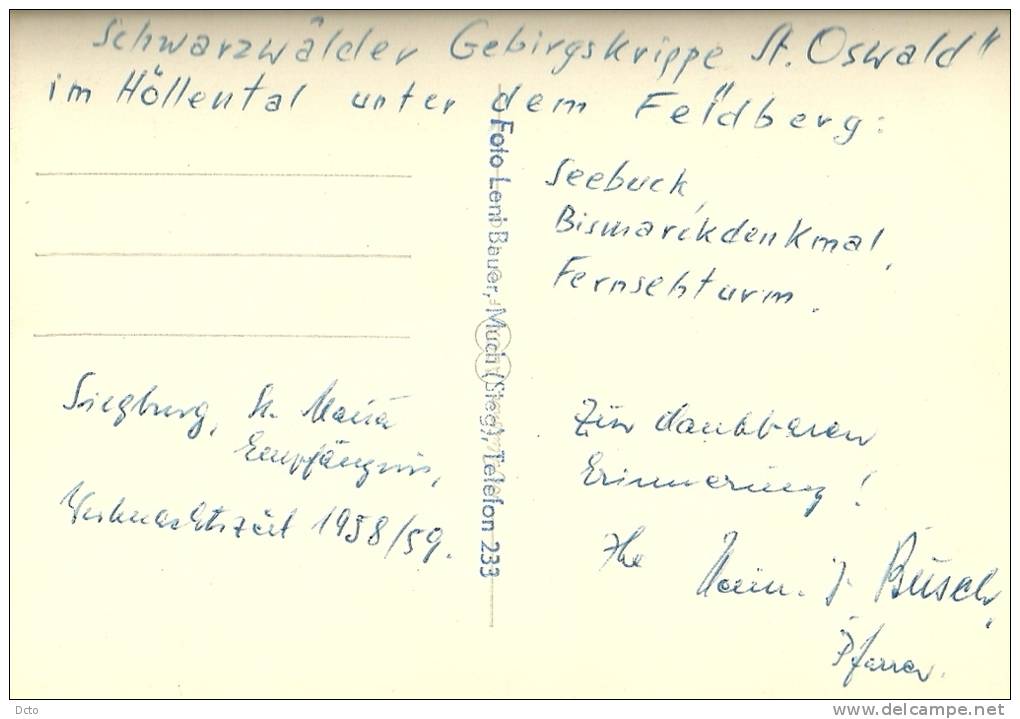 Schwarzwälder Gebirgskrippe St. Oswald"
im Höllental unter dem "Feldberg:
Seebuck,
Bismarckdenkmal,
Fernsehturm.
Foto Leni Bauer, Much (Sieg), Telefon 233
Siegburg, St. Maria
Empfängnis,
Weihnachtszeit 1958/59.
Zur dankbaren
Erinnerung!
Ihr
J. Büsch,
Pfarrer.
Dcto
www.delcampe.net